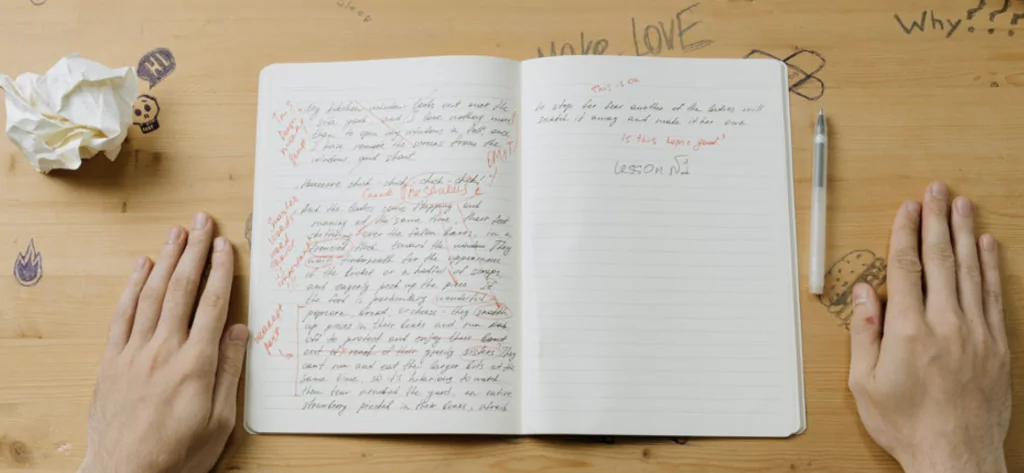 Sleep
Make LOVE
Why???
HI
My kitchen window looks out over the
yard, and I love nothing more
than to open my windows in fall, once
I have removed the screens from the
window, and shout.
OMIT!
chick-chick, chick-chick!
And the ladies come flapping and
running at the same time, their feet
over the fallen leaves, in a
flock toward the window. They
underneath for the appearance
of the bucket or a handful of scraps
and eagerly peck up the pieces. If
the food is particularly wonderful
popcorn, bread, or cheese - they snatch
up pieces in their beaks and run
off to protect and enjoy their
out of reach of their greedy sisters. They
can't run and eat the larger bits at the
same time, so it's hilarious to watch
them tear around the yard, an entire
strawberry pinched in their beaks, afraid
This is OK
to stop for fear another of the ladies will
snatch it away and make it her own.
Is this topic good?
Lesson №1